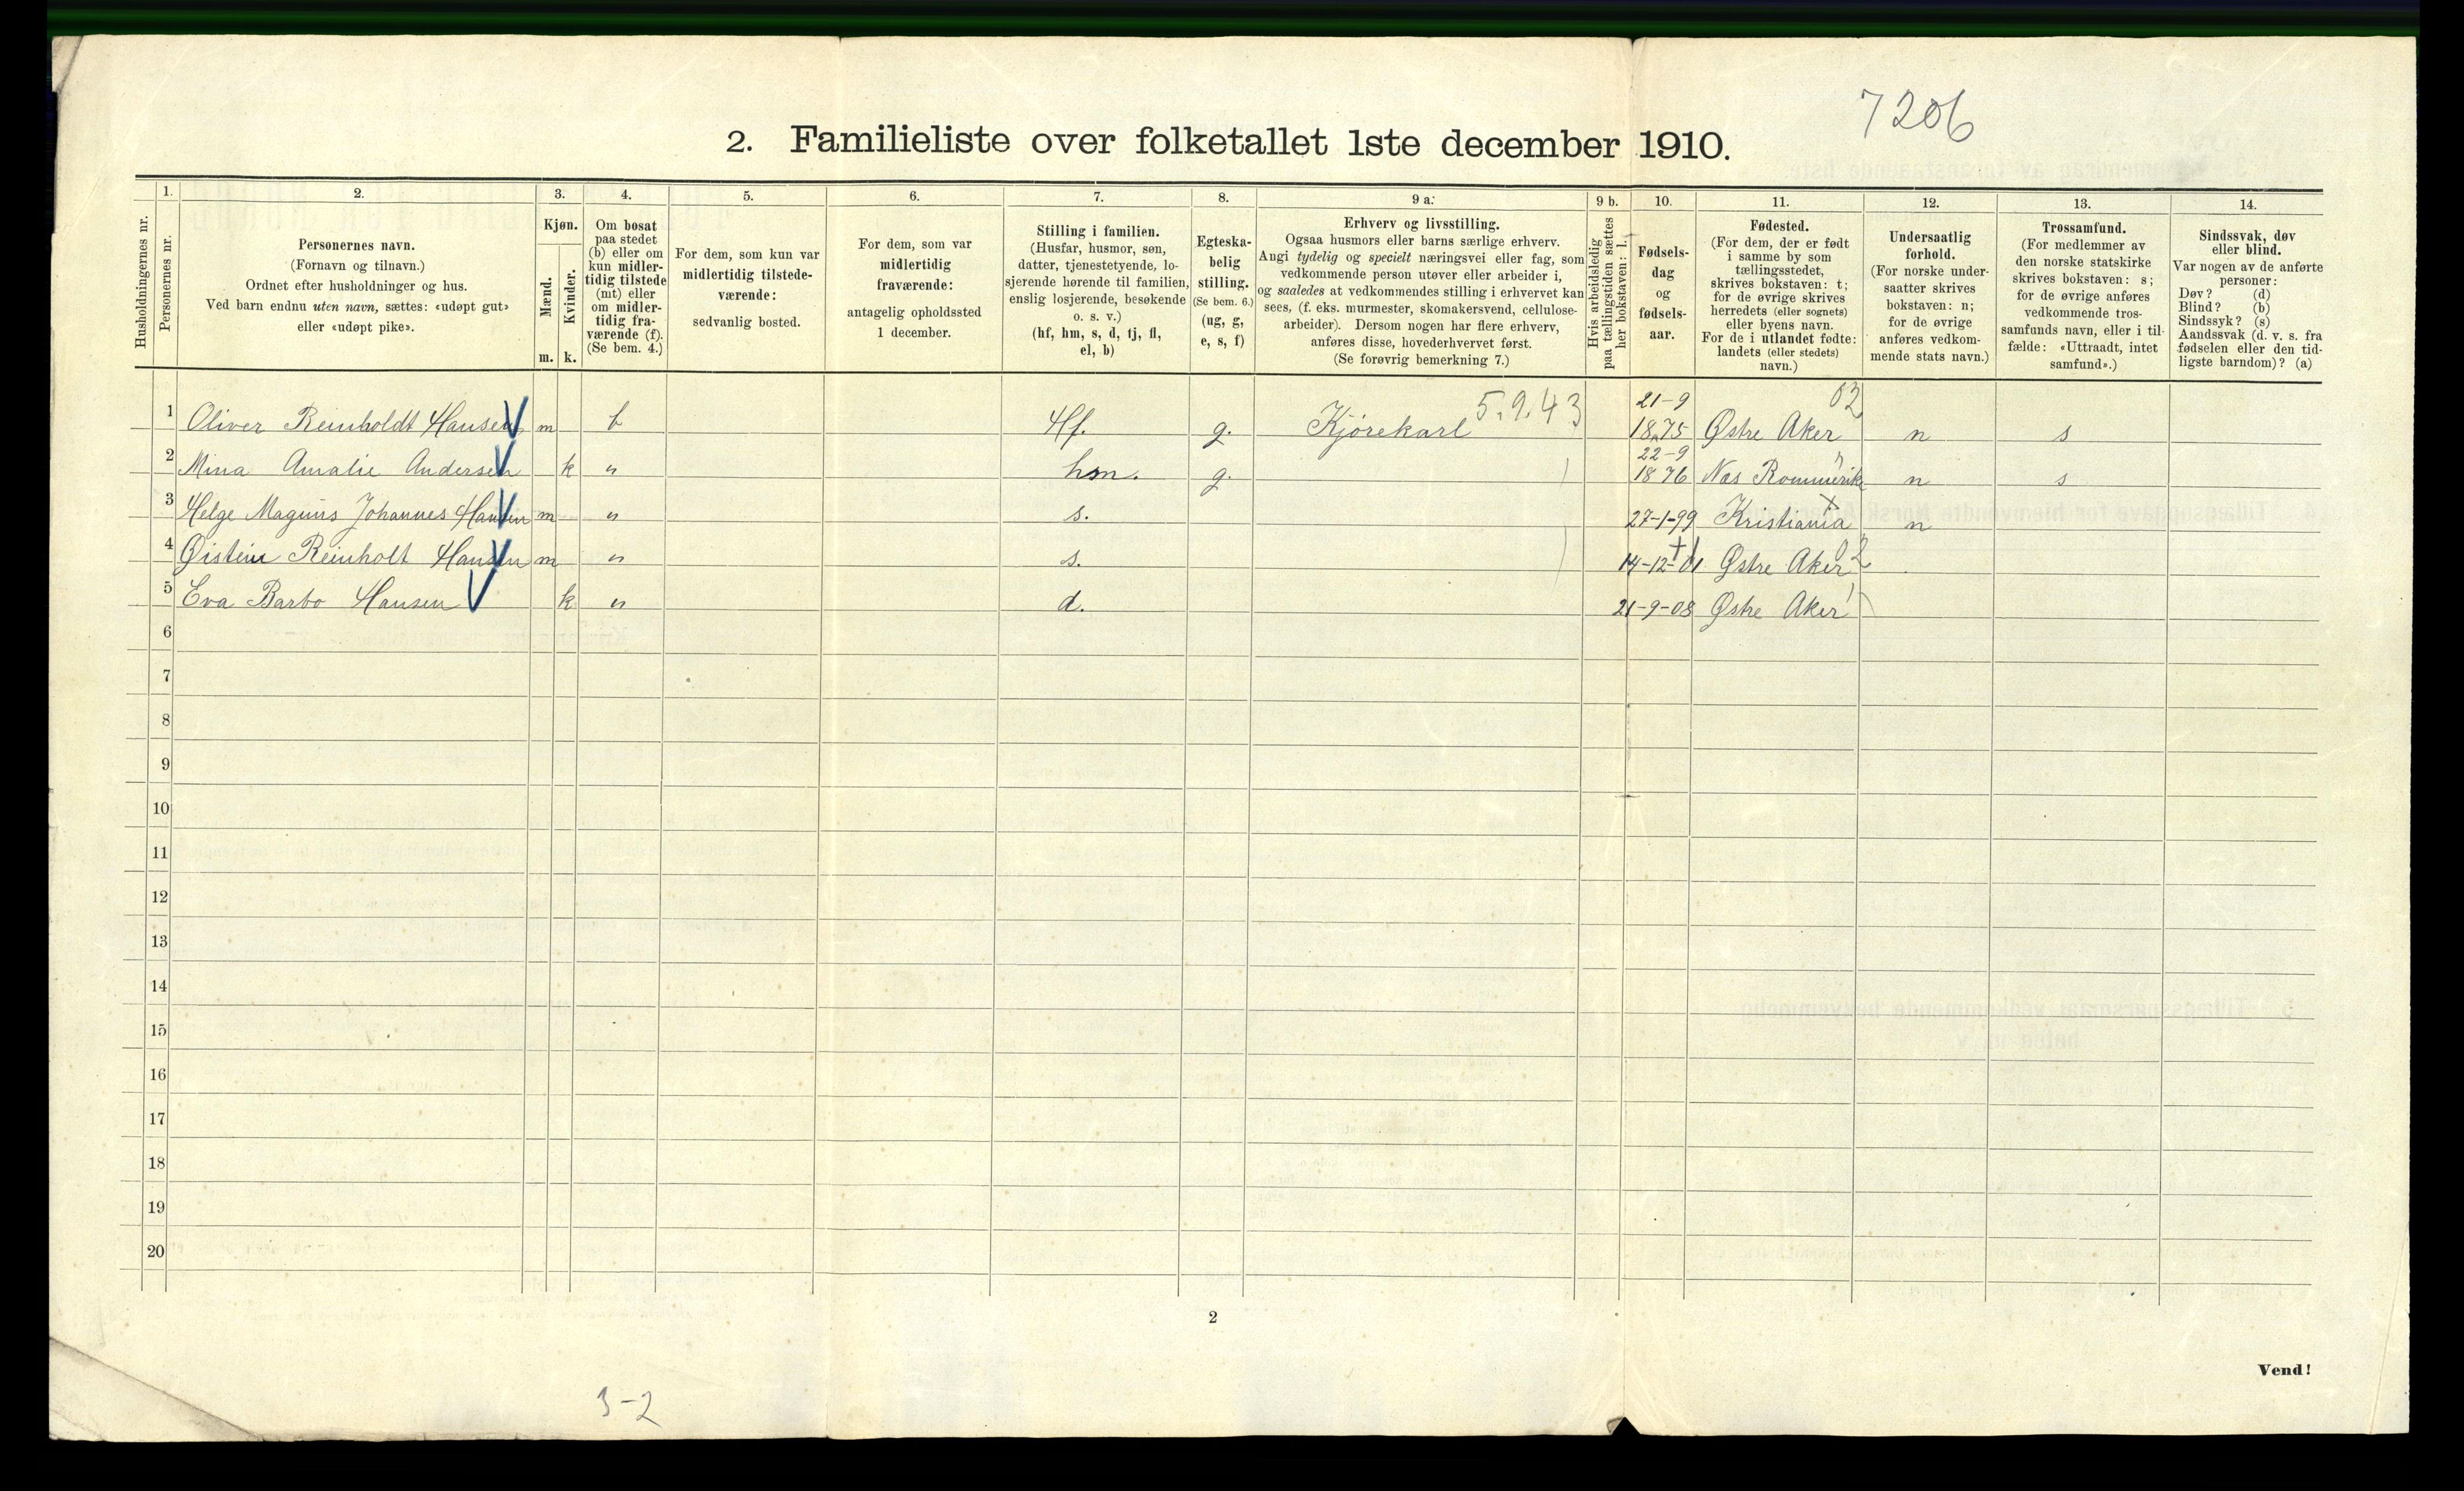 7206
2. Familieliste over folketallet 1ste december 1910.
Husholdningernes nr.
1.
Personernes nr.
2.
Personernes navn.
(Fornavn og tilnavn.)
Ordnet efter husholdninger og hus.
Ved barn endnu uten navn, sættes: «udøpt gut»
eller «udøpt pike».
3.
Kjøn.
Mænd.
m.
Kvinder.
k.
4.
Om bosat
paa stedet
(b) eller om
kun midler-
tidig tilstede
(mt) eller
om midler-
tidig fra-
værende (f).
(Se bem. 4.)
5.
For dem, som kun var
midlertidig tilstede-
værende:
sedvanlig bosted.
6.
For dem, som var
midlertidig
fraværende:
antagelig opholdssted
1 december.
7.
Stilling i familien.
(Husfar, husmor, søn,
datter, tjenestetyende, lo-
sjerende hørende til familien,
enslig losjerende, besøkende
o. s. v.)
(hf, hm, s, d, tj, fl,
el, b)
8.
Egteska-
belig
stilling.
(Se bem. 6.)
(ug, g,
e, s, f)
9 a.
Erhverv og livsstilling.
Ogsaa husmors eller barns særlige erhverv.
Angi tydelig og specielt næringsvei eller fag, som
vedkommende person utøver eller arbeider i,
og saaledes at vedkommendes stilling i erhvervet kan
sees, (f. eks. murmester, skomakersvend, cellulose-
arbeider). Dersom nogen har flere erhverv,
anføres disse, hovederhvervet først.
(Se forøvrig bemerkning 7.)
9 b.
Hvis arbeidsledig
paa tællingstiden sættes
her bokstaven: l.
10.
Fødsels-
dag
og
fødsels-
aar.
11.
Fødested.
(For dem, der er født
i samme by som
tællingsstedet,
skrives bokstaven: t;
for de øvrige skrives
herredets (eller sognets)
eller byens navn.
For de i utlandet fødte:
landets (eller stedets)
navn.)
12.
Undersaatlig
forhold.
(For norske under-
saatter skrives
bokstaven: n;
for de øvrige
anføres vedkom-
mende stats navn.)
13.
Trossamfund.
(For medlemmer av
den norske statskirke
skrives bokstaven: s;
for de øvrige anføres
vedkommende tros-
samfunds navn, eller i til-
fælde: «Uttraadt, intet
samfund».)
14.
Sindssvak, døv
eller blind.
Var nogen av de anførte
personer:
Døv? (d)
Blind? (b)
Sindssyk? (s)
Aandssvak (d. v. s. fra
fødselen eller den tid-
ligste barndom)? (a)
1 Oliver Reinholdt Hansen m b Hf. g. Kjørekarl 5.9.43 21-9 1875 Østre Aker 02 n s
2 Mina Amalie Andersen k " hm. g. 22-9 1876 Næs Rommerike n s
3 Helge Magnus Johannes Hansen m " s. 27-1-99 Kristiania n
4 Øistein Reinholt Hansen m " s. 14-12-01 Østre Aker 02
5 Eva Barbo Hansen k " d. 21-9-08 Østre Aker
6
7
8
9
10
11
12
13
14
15
16
17
18
19
20
2
Vend!
3-2